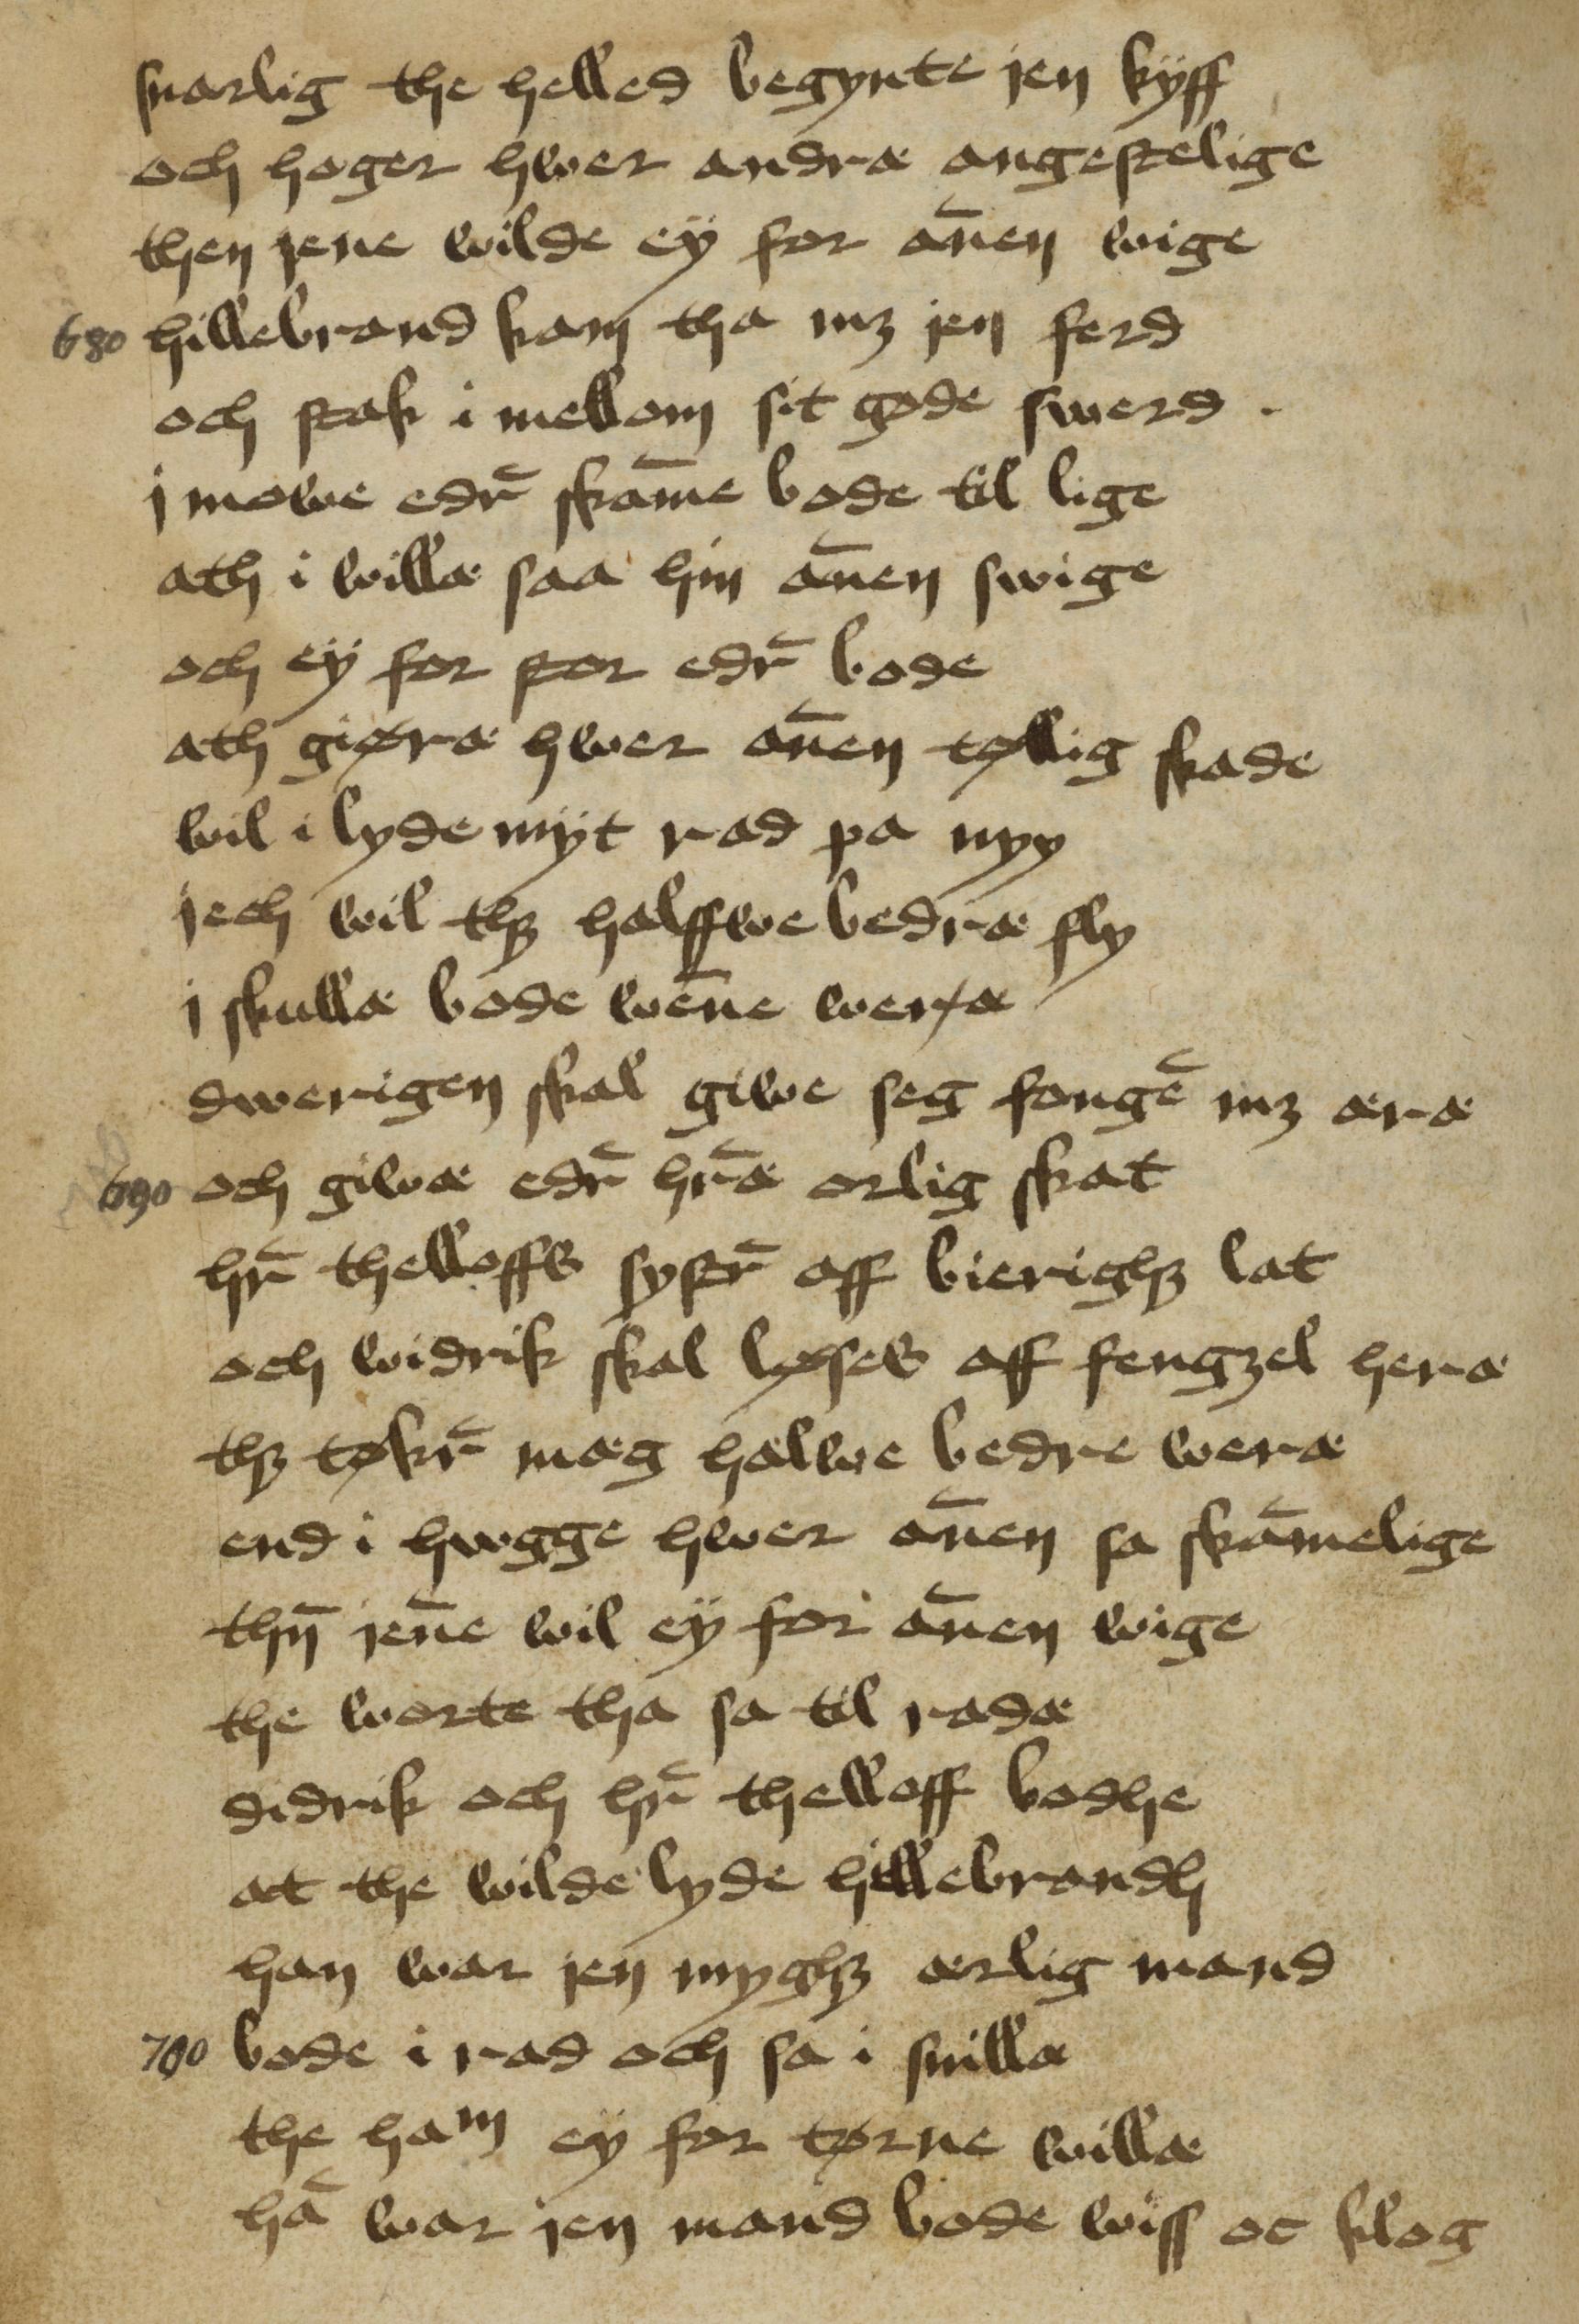 snarlig the helled begynte jen kyff
och hoger hwer andræ angestelige
then jene wilde eÿ for an̄en wige
680 hillebrand kam tha mꝫ jen ferd
och stak i mellom sit gode swerd .
j mowe edr̄ skam̄e bode til lige
ath i willæ saa hin an̄en swige
och eÿ for stor edr̄ bode
ath giøræ hwer an̄en tøllig skade
wil i lyde mÿt rad pa nyy
jech wil thꝫ halffwe bedræ fly
j skullæ bode wen̄e weræ
dwerigen skal giwe seg fongē mꝫ æræ
690 och giwæ edr̄ hr̄æ ærlig skat
hr̄ thelloffs systr̄ aff bierighꝫ lat
och widrik skal løses aff fengzel heræ
thꝫ tøkr̄ mæg halwe bedre weræ
end i hwgge hwer an̄en sa skam̄elige
thn̄ jen̄e wil eÿ for an̄en wige
the worte tha sa til radæ
didrik och hr̄ thelloff bodhe
at the wilde lyde hillebrandh
han war jen myghꝫ ærlig mand
700 bode i rad och sa i snillæ
the ham eÿ for tørne willæ
hā war jen mand bode wiss oc klog